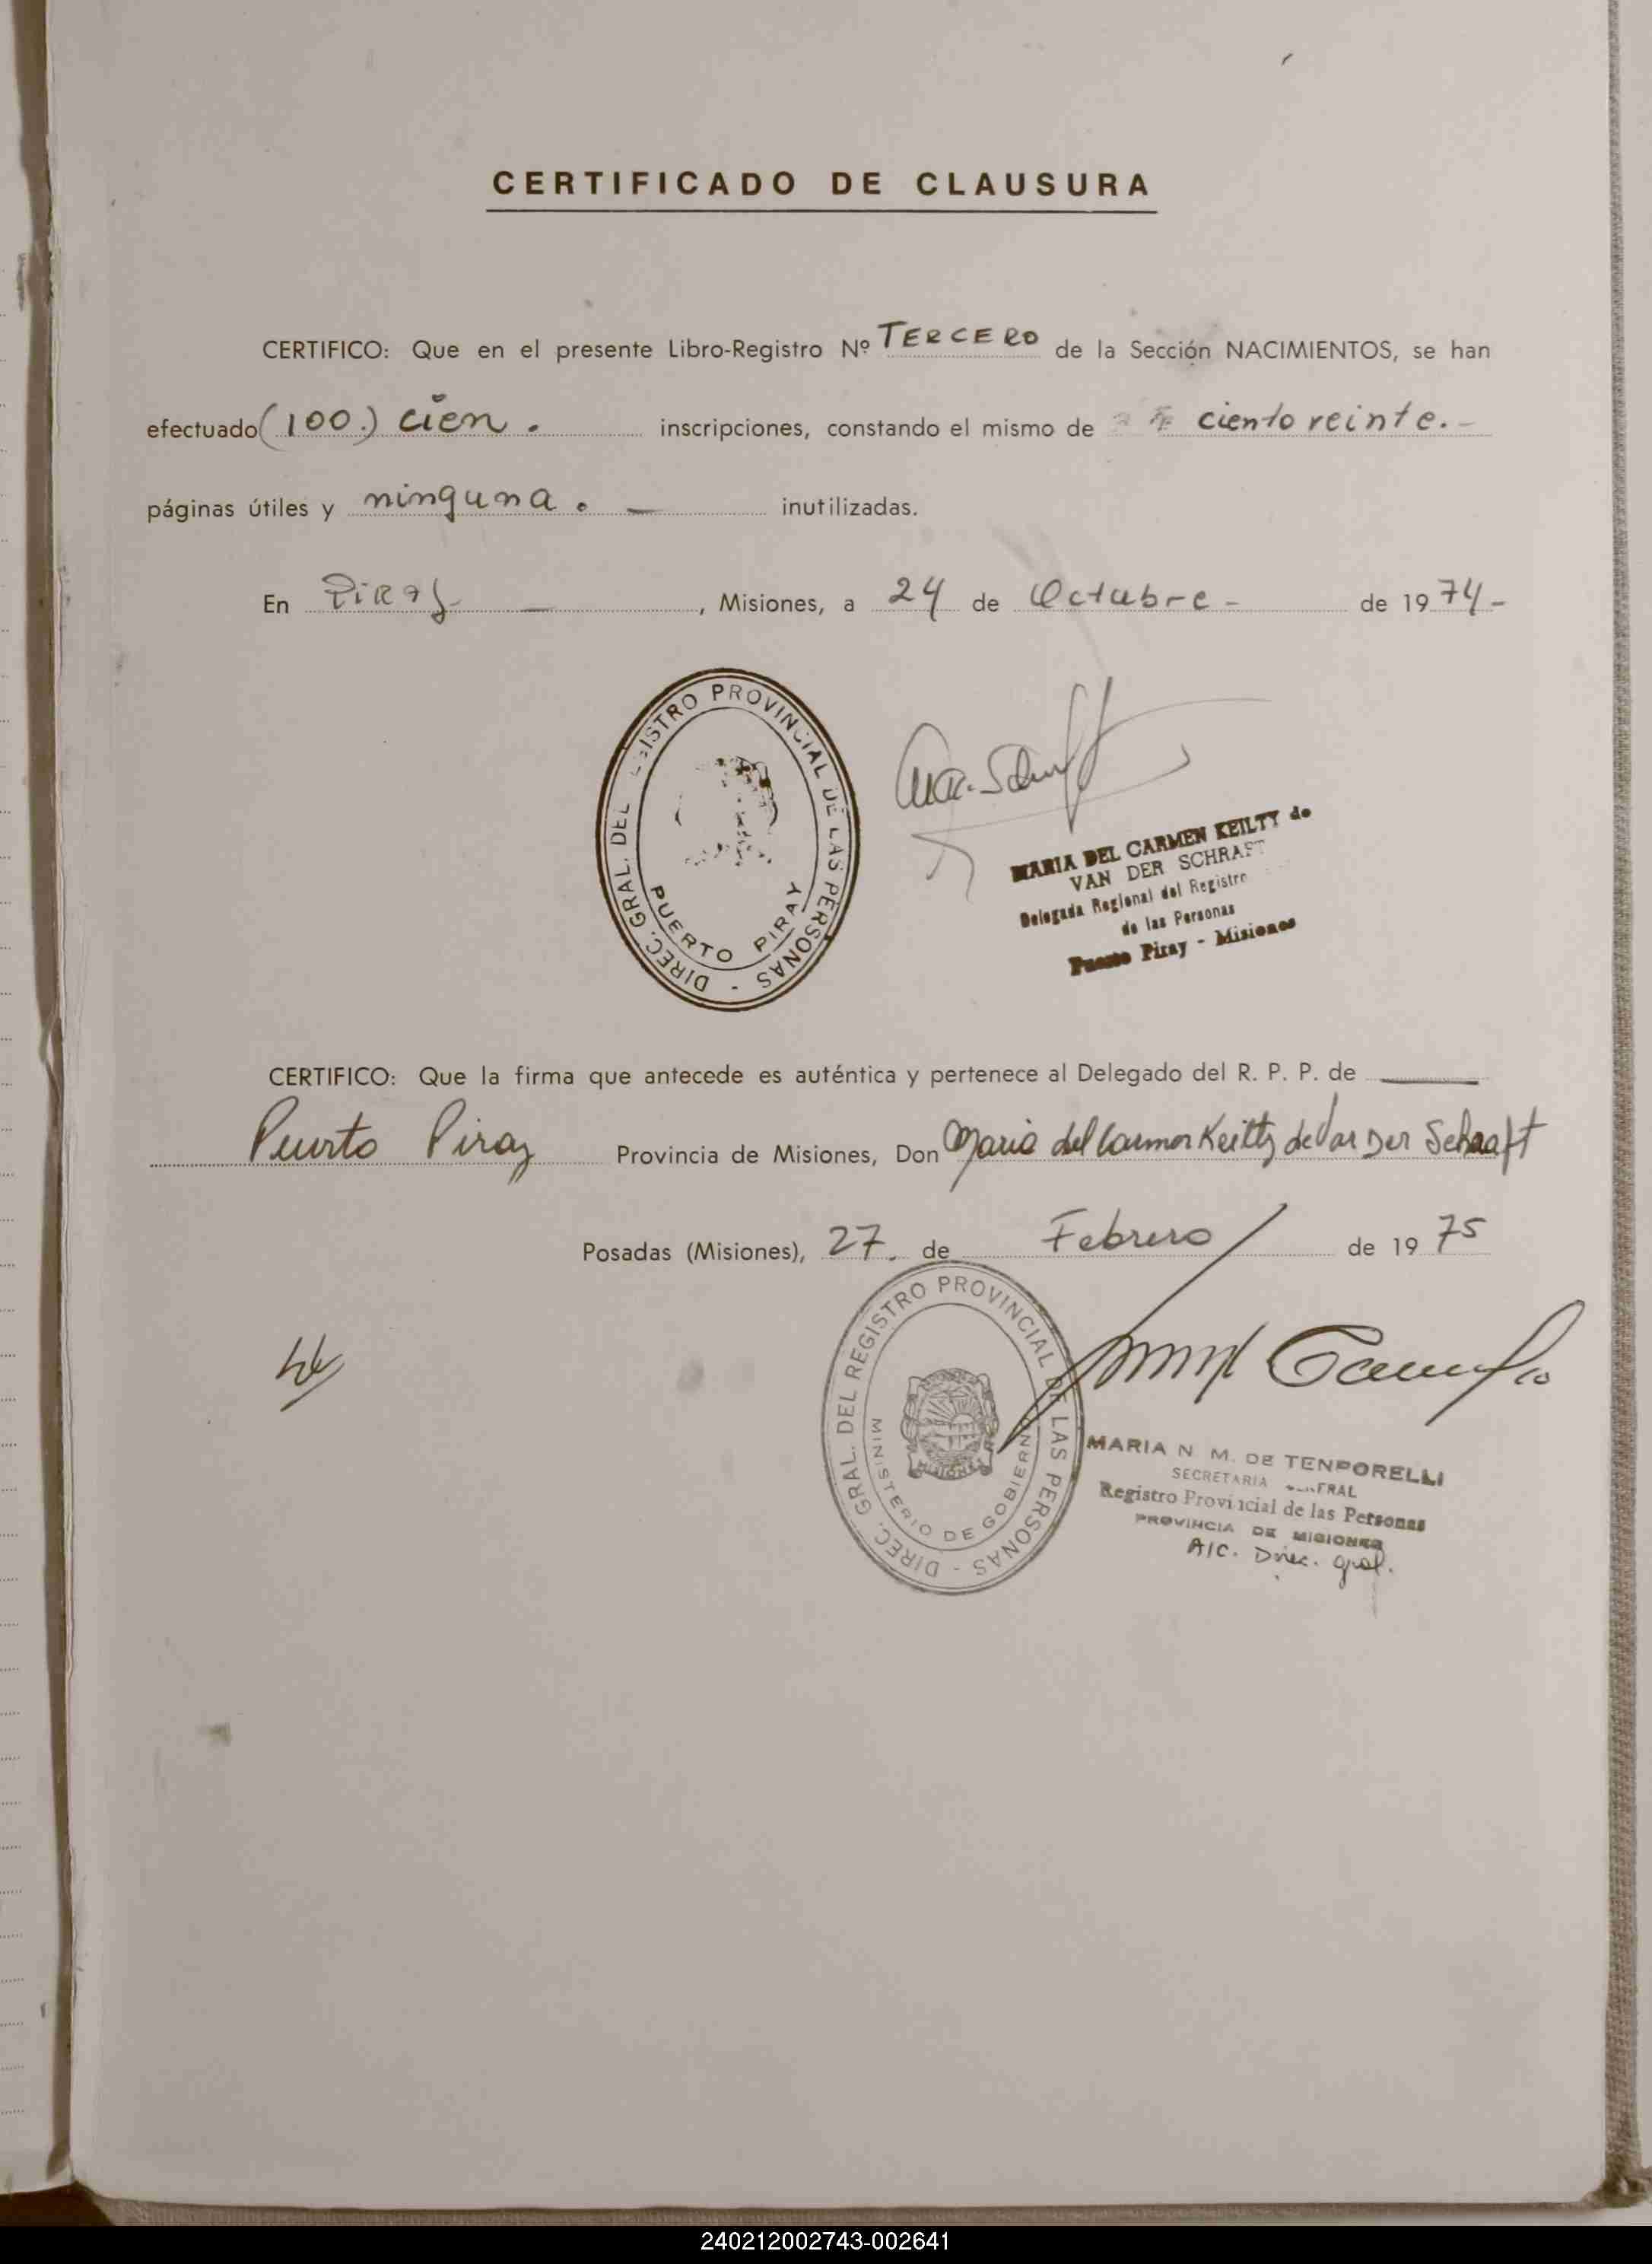 CERTIFICADO DE CLAUSURA
CERTIFICO: Que en el presente Libro-Registro Nº TERCERO de la Sección NACIMIENTOS, se han
efectuado (100.) cien. inscripciones, constando el mismo de ciento veinte.-
páginas útiles y ninguna. — inutilizadas.
En Piray — , Misiones, a 24 de Octubre - de 1974-
DIREC. GRAL. DEL REGISTRO PROVINCIAL DE LAS PERSONAS -
PUERTO PIRAY
MARIA DEL CARMEN KEILTY de
VAN DER SCHRAFT
Delegada Regional del Registro
de las Personas
Puerto Piray - Misiones
CERTIFICO: Que la firma que antecede es auténtica y pertenece al Delegado del R. P. P. de
Puerto Piray Provincia de Misiones, Don Maria del Carmen Keilty de Van Der Schraaft
Posadas (Misiones), 27. de Febrero de 1975
DIREC. GRAL. DEL REGISTRO PROVINCIAL DE LAS PERSONAS -
MINISTERIO DE GOBIERNO
MISIONES
MARIA N. M. DE TENPORELLI
SECRETARIA GENERAL
Registro Provincial de las Personas
PROVINCIA DE MISIONES
A/C. Direc. gral.
240212002743-002641